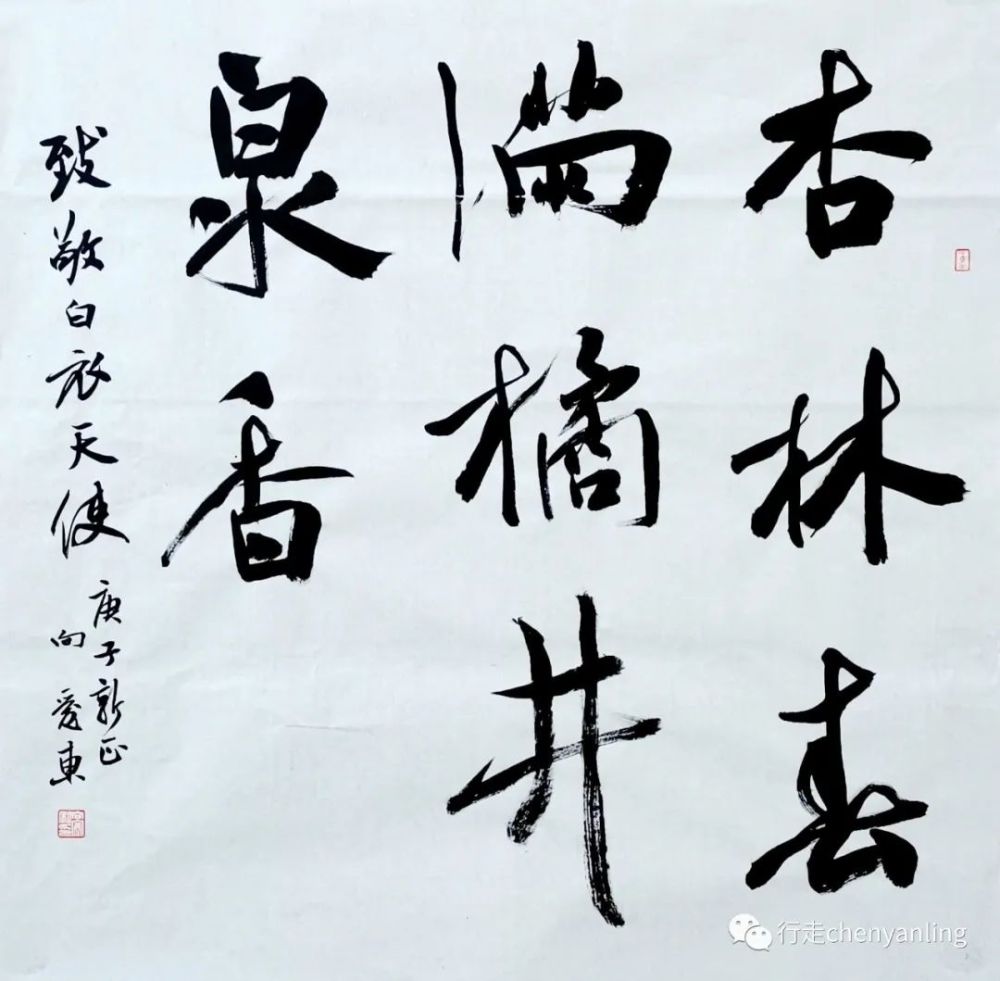 杏林春
满橘井
泉香
致敬白衣天使
庚子新正
向爱東
行走chenyanling